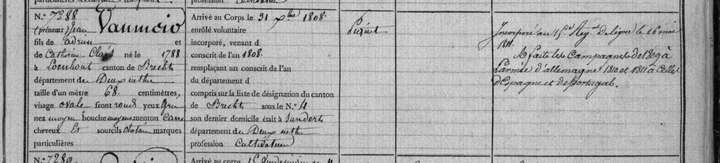 N.º 7288
(prénoms) Jean Vannicio
fils de Adrien et
de Cathérine Claes né le 1788
à Loenhout canton de Brecht
département de Deux nèthes
taille d'un mètre 68 centimètres,
visage ovale front rond yeux gris
nez moyen bouche moyenne menton
cheveux et sourcils chatain marques
particulières
N.º 7289
Arrivé au Corps le 31 Xbre 1808
enrôlé volontaire
incorporé, venant d
conscrit de l'an 1808
remplaçant un conscrit de l'an
du département d
compris sur la liste de désignation du canton
de Brecht sous le N.º 4
son dernier domicile était à Sundert
département de Deux nèthes
profession Cultivateur
Arrivé au corps le
Piquet
Incorporé au Regt de ligne le 16 mai
1811.
A fait les Campagnes de 1809 à
l'armée d'allemagne 1810 et 1811 à Celles
d'Espagne et de Portugal.